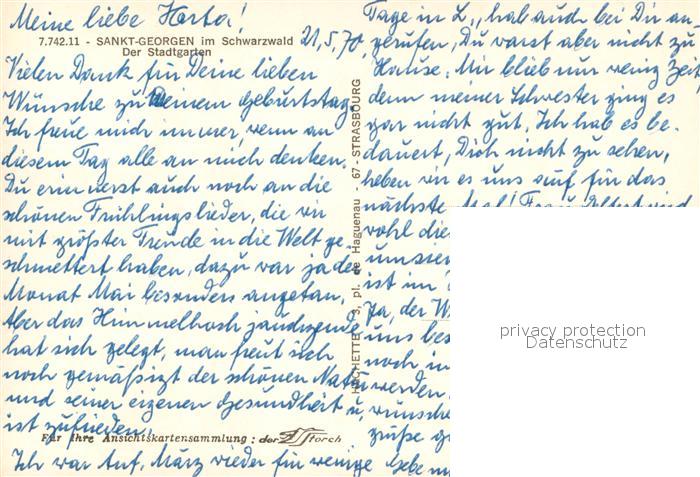 Meine liebe Herta!
7.742.11 - SANKT-GEORGEN im Schwarzwald
Der Stadtgarten
21.5.70
Vielen Dank für Deine lieben
Wünsche zu meinem Geburtstag.
Ich freue mich immer, wenn an
diesem Tag alle an mich denken.
Du erinnerst auch noch an die
schönen Frühlingslieder, die wir
mit größter Freude in die Welt ge-
schmettert haben, dazu war ja der
Monat Mai besonders angetan,
Aber das Himmelhoch jauchzende
hat sich gelegt, man freut sich
noch gemäßigt der schönen Natur
und seiner eigenen Gesundheit u.
ist zufrieden.
Für Ihre Ansichtskartensammlung: der Storch
Ich war Anf. März wieder für wenige
HACHETTE 3, pl. de Haguenau - 67-STRASBOURG
Tage in L., hab auch bei Dir an-
gerufen, Du warst aber nicht zu
Hause. Mir blieb nur wenig Zeit,
denn meiner Schwester ging es
gar nicht gut. Ich hab es be-
dauert, Dich nicht zu sehen,
heben wir es uns auf für das
nächste Mal! Frau Albert wird
wohl die
unser
ist im
Ja, der W
uns bes
noch in
werden
wünsche
grüße
privacy protection
Datenschutz